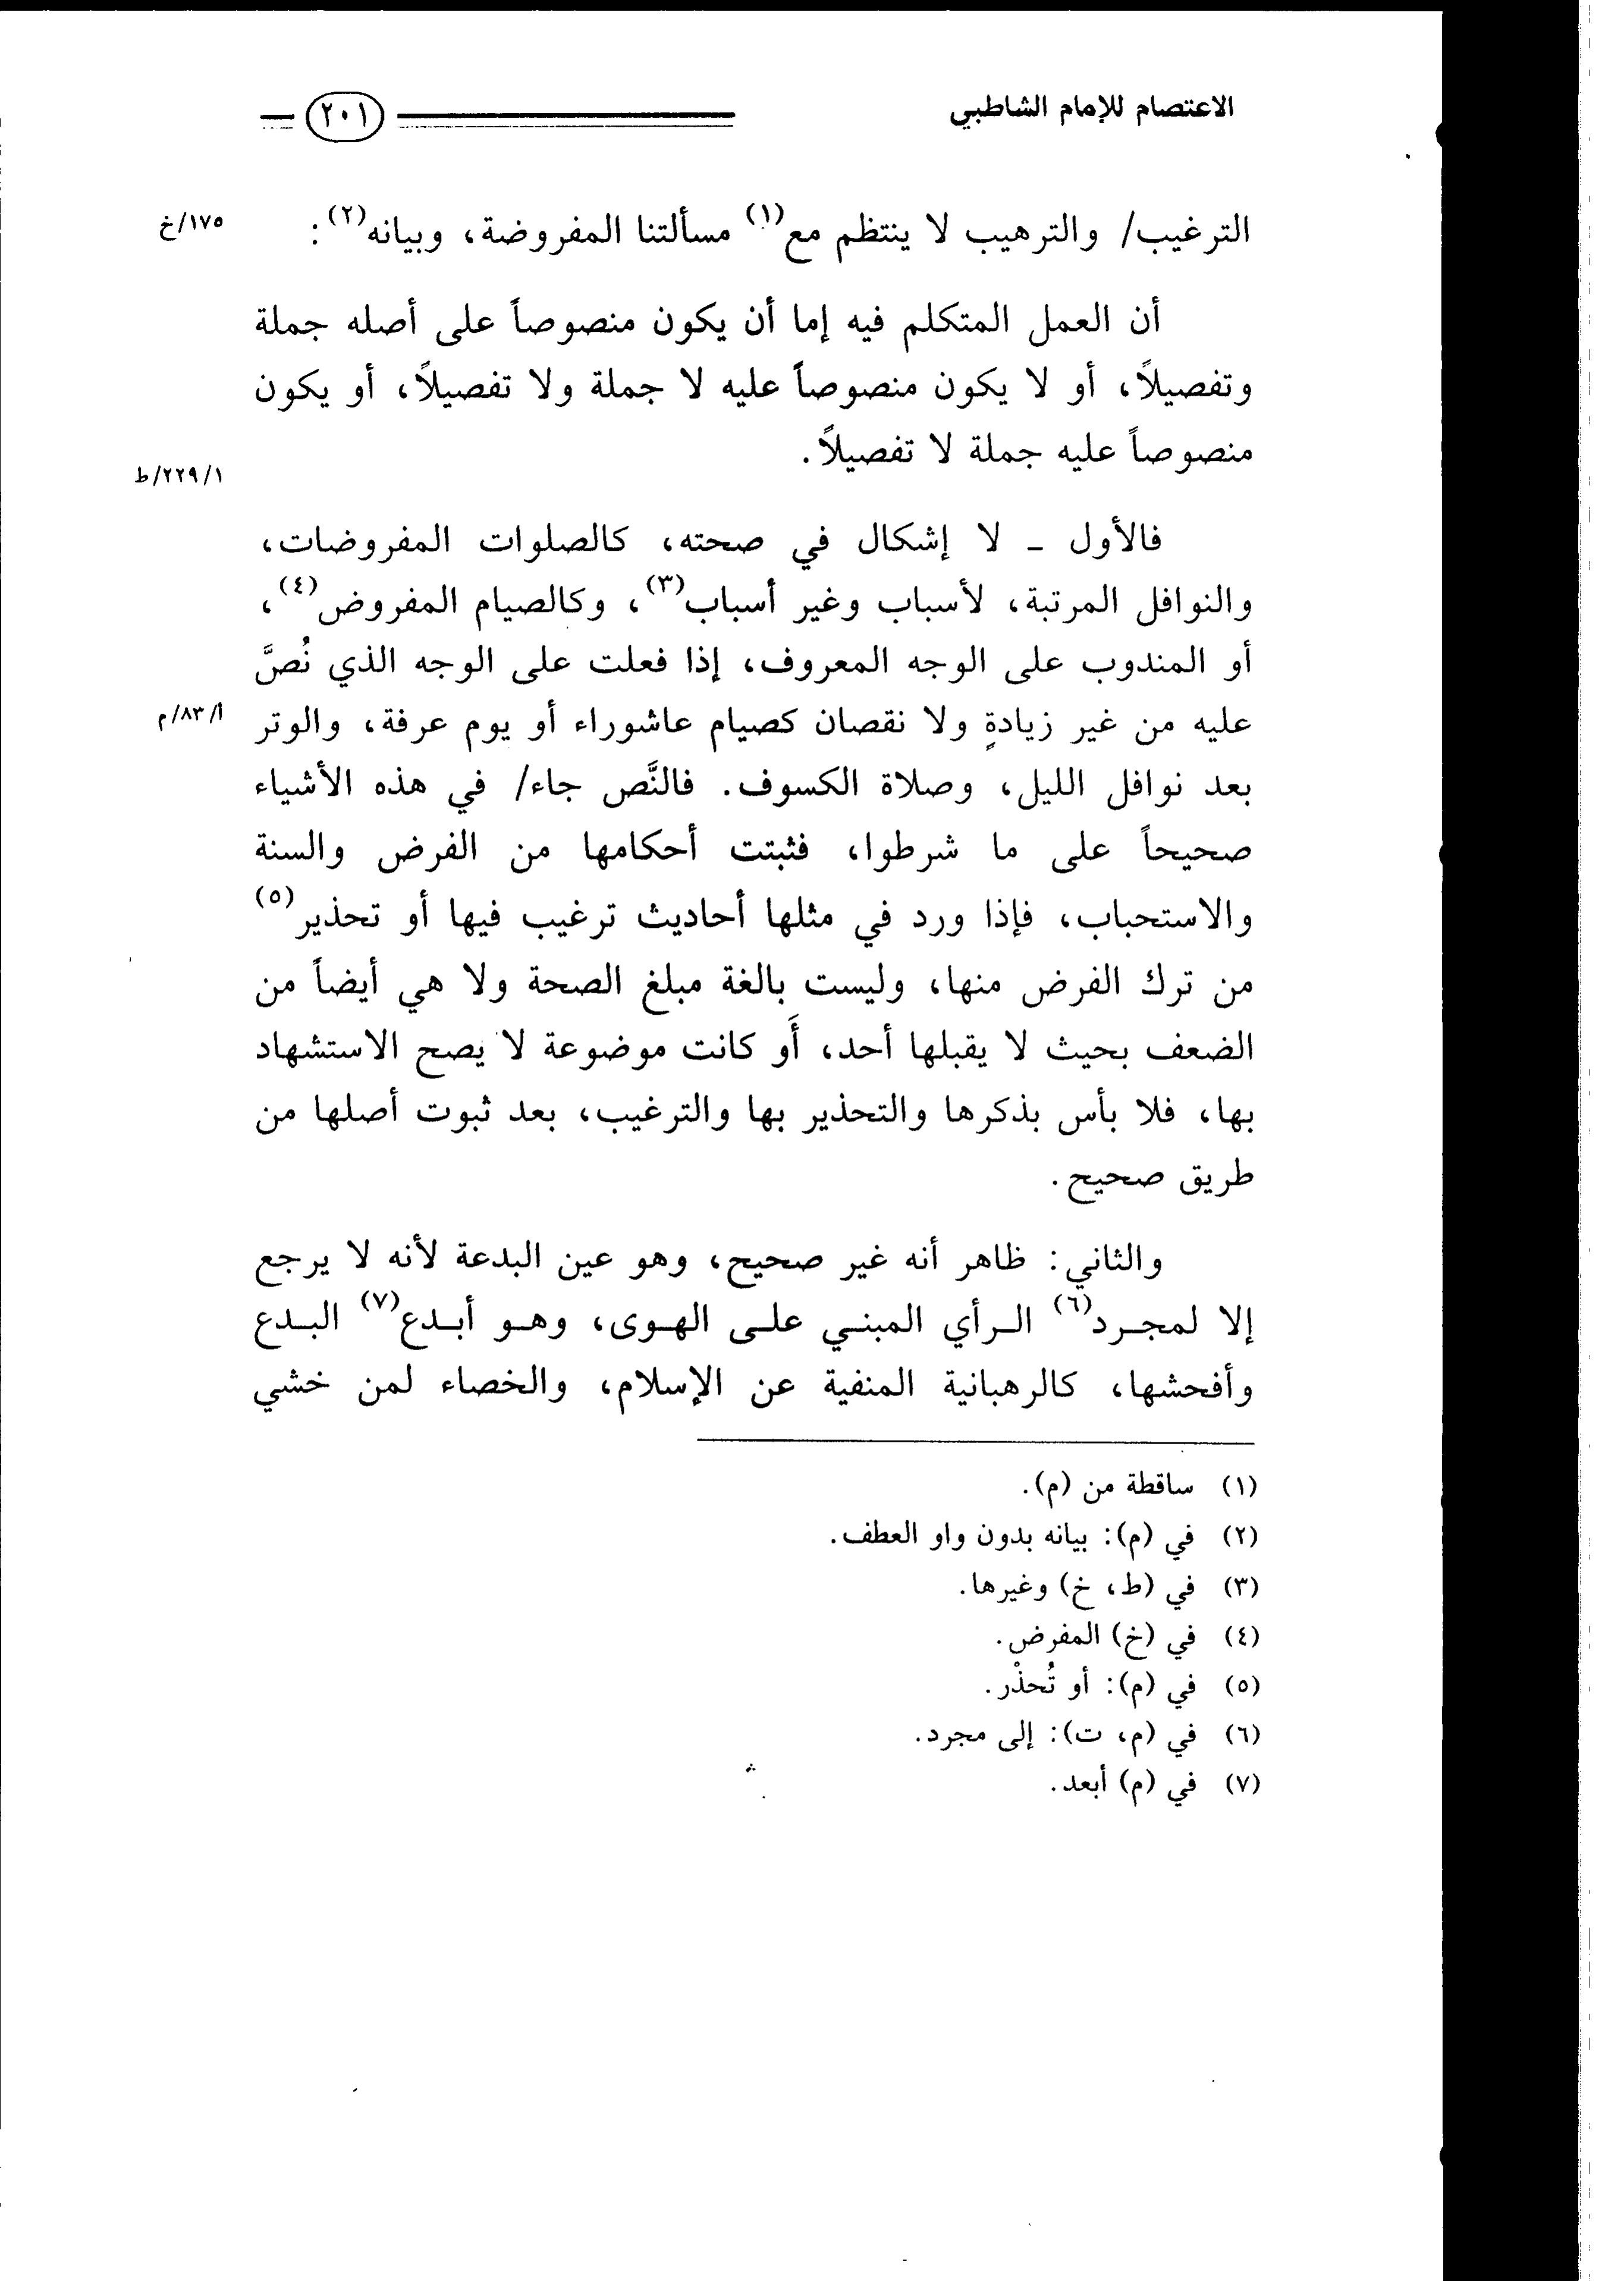 الاعتصام للإمام الشاطبي
٢٠١
الترغيب/ والترهيب لا ينتظم مع(١) مسألتنا المفروضة، وبيانه(٢) :
١٧٥/خ
أن العمل المتكلم فيه إما أن يكون منصوصاً على أصله جملة
وتفصيلاً، أو لا يكون منصوصاً عليه لا جملة ولا تفصيلاً، أو يكون
منصوصاً عليه جملة لا تفصيلاً.
٢٢٩/١/ط
فالأول - لا إشكال في صحته، كالصلوات المفروضات،
والنوافل المرتبة، لأسباب وغير أسباب(٣)، وكالصيام المفروض(٤)،
أو المندوب على الوجه المعروف، إذا فعلت على الوجه الذي نُصَّ
عليه من غير زيادةٍ ولا نقصان كصيام عاشوراء أو يوم عرفة، والوتر
أ/٨٣/م
بعد نوافل الليل، وصلاة الكسوف. فالنَّص جاء/ في هذه الأشياء
صحيحاً على ما شرطوا، فثبتت أحكامها من الفرض والسنة
والاستحباب، فإذا ورد في مثلها أحاديث ترغيب فيها أو تحذير(٥)
من ترك الفرض منها، وليست بالغة مبلغ الصحة ولا هي أيضاً من
الضعف بحيث لا يقبلها أحد، أَو كانت موضوعة لا يصح الاستشهاد
بها، فلا بأس بذكرها والتحذير بها والترغيب، بعد ثبوت أصلها من
طريق صحيح.
والثاني: ظاهر أنه غير صحيح، وهو عين البدعة لأنه لا يرجع
إلا لمجرد(٦) الرأي المبني على الهوى، وهو أبدع(٧) البدع
وأفحشها، كالرهبانية المنفية عن الإسلام، والخصاء لمن خشي
(١) ساقطة من (م).
(٢) في (م): بيانه بدون واو العطف.
(٣) في (ط، خ) وغيرها.
(٤) في (خ) المفرض.
(٥) في (م): أو تُحذْر.
(٦) في (م، ت): إلى مجرد.
(٧) في (م) أبعد.